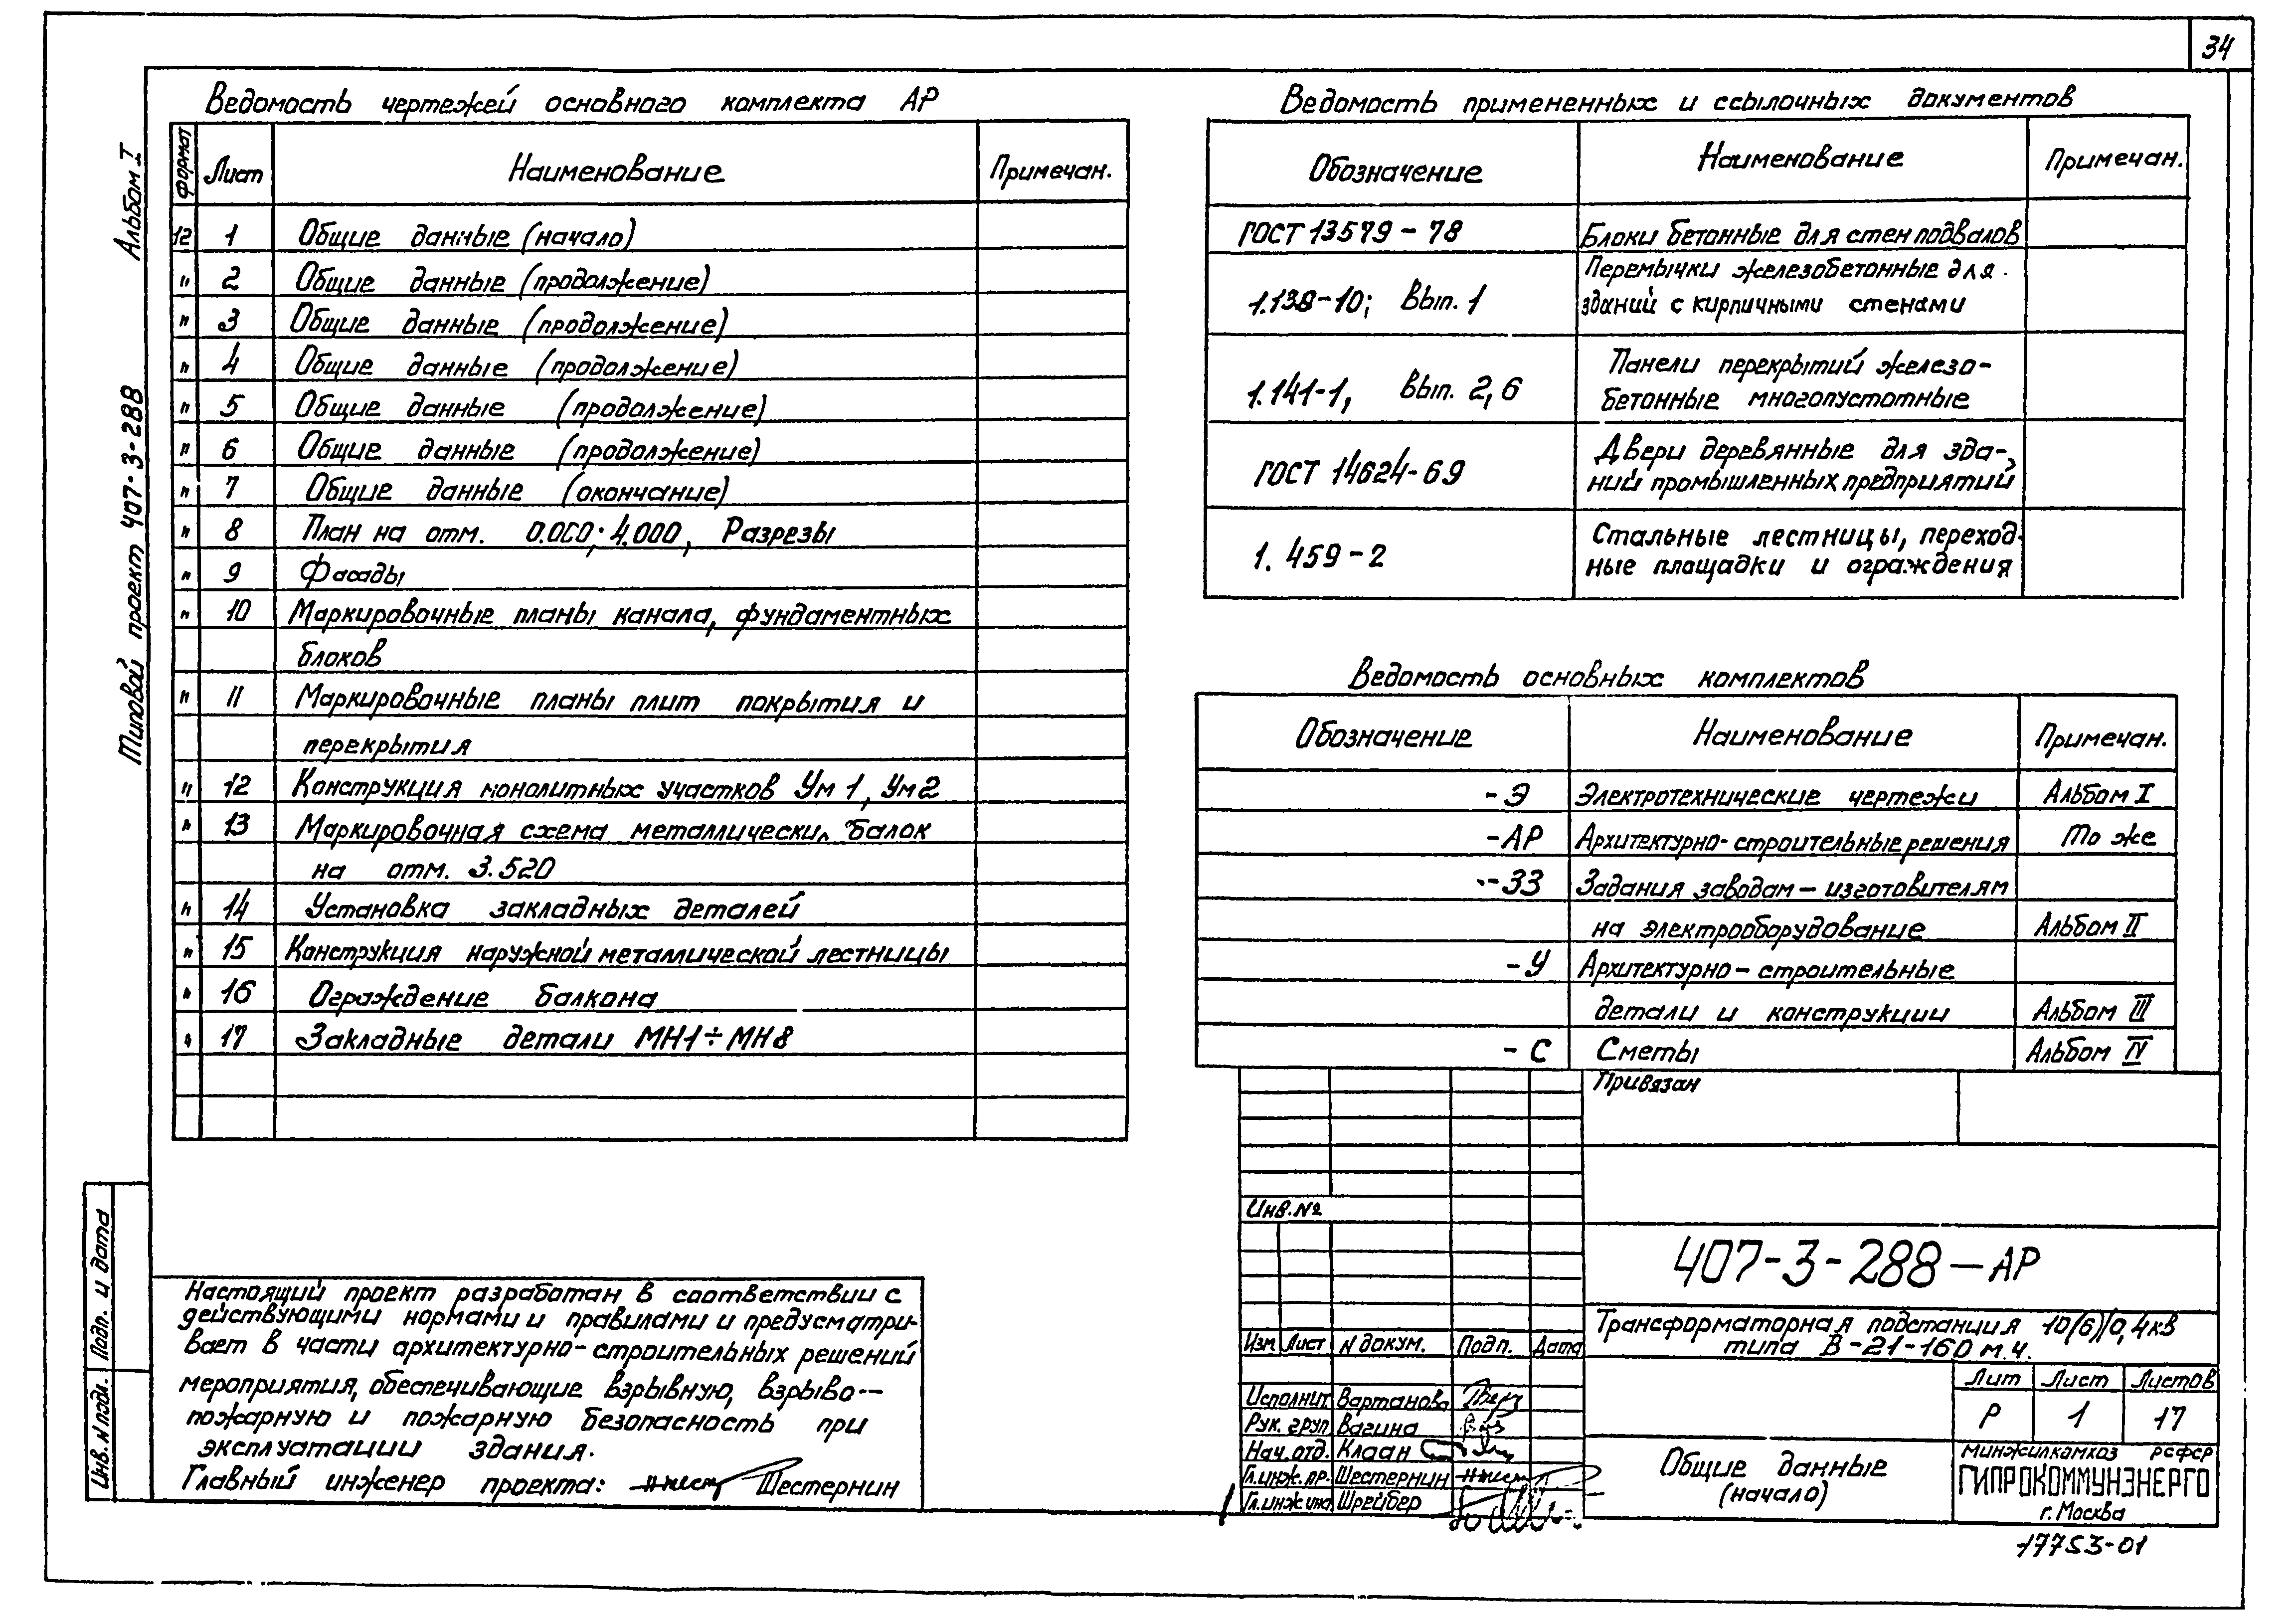 34
Альбом I
Типовой проект 407-3-288
Ведомость чертежей основного комплекта АР
Формат Лист Наименование Примечан.
12 1 Общие данные (начало)
" 2 Общие данные (продолжение)
" 3 Общие данные (продолжение)
" 4 Общие данные (продолжение)
" 5 Общие данные (продолжение)
" 6 Общие данные (продолжение)
" 7 Общие данные (окончание)
" 8 План на отм. 0.000; 4.000, Разрезы
" 9 Фасады
" 10 Маркировочные планы канала, фундаментных
блоков
" 11 Маркировочные планы плит покрытия и
перекрытия
" 12 Конструкция монолитных участков Ум 1, Ум2
" 13 Маркировочная схема металлических балок
на отм. 3.520
" 14 Установка закладных деталей
" 15 Конструкция наружной металлической лестницы
" 16 Ограждение балкона
" 17 Закладные детали МН1÷МН8
Ведомость примененных и ссылочных документов
Обозначение Наименование Примечан.
ГОСТ 13579-78 Блоки бетонные для стен подвалов
1.138-10; Вып. 1 Перемычки железобетонные для
зданий с кирпичными стенами
1.141-1, Вып. 2,6 Панели перекрытий железо-
бетонные многопустотные
ГОСТ 14624-69 Двери деревянные для зда-
ний промышленных предприятий
1.459-2 Стальные лестницы, переход-
ные площадки и ограждения
Ведомость основных комплектов
Обозначение Наименование Примечан.
-Э Электротехнические чертежи Альбом I
-АР Архитектурно-строительные решения То же
-ЗЗ Задания заводам-изготовителям
на электрооборудование Альбом II
-У Архитектурно-строительные
детали и конструкции Альбом III
-С Сметы Альбом IV
Привязан
Инв.№
407-3-288-АР
Трансформаторная подстанция 10(6)/0,4кв
типа В-21-160 м.ч.
Изм Лист N докум. Подп. Дата
Исполнит. Вартанова
Рук. груп Вагина
Нач. отд. Клаан
Гл.инж.пр. Шестернин
Гл.инж.инс Шрейбер
Общие данные
(начало)
Лит Лист Листов
Р 1 17
Минжилкомхоз РСФСР
ГИПРОКОММУНЭНЕРГО
г. Москва
17753-01
Настоящий проект разработан в соответствии с
действующими нормами и правилами и предусматри-
вает в части архитектурно-строительных решений
мероприятия, обеспечивающие взрывную, взрыво-
пожарную и пожарную безопасность при
эксплуатации здания.
Главный инженер проекта: Шестернин
Инв.N подл. Подп. и дата